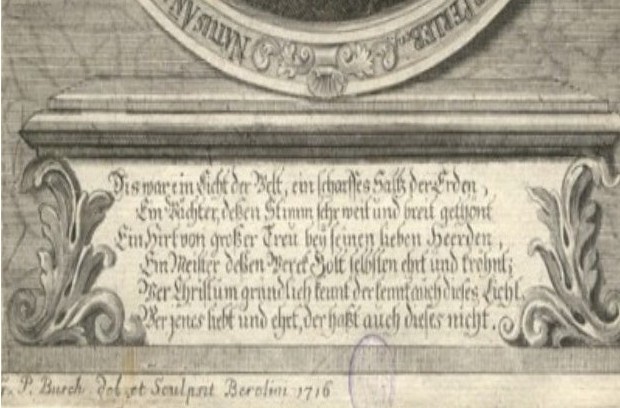 NATUS AN
Dis war ein Licht der Welt, ein scharffes Saltz der Erden,
Ein Wächter, deßen Stimm sehr weit und breit gethönt
Ein Hirt von großer Treu bey seinen lieben Heerden,
Ein Meister deßen Werck Gott selbsten ehrt und kröhnt;
Wer Christum gründlich kennt der kennt auch dieses Licht.
Wer jenes liebt und ehrt, der haßt auch dieses nicht.
P. Busch del. et Sculpsit Berolini 1716